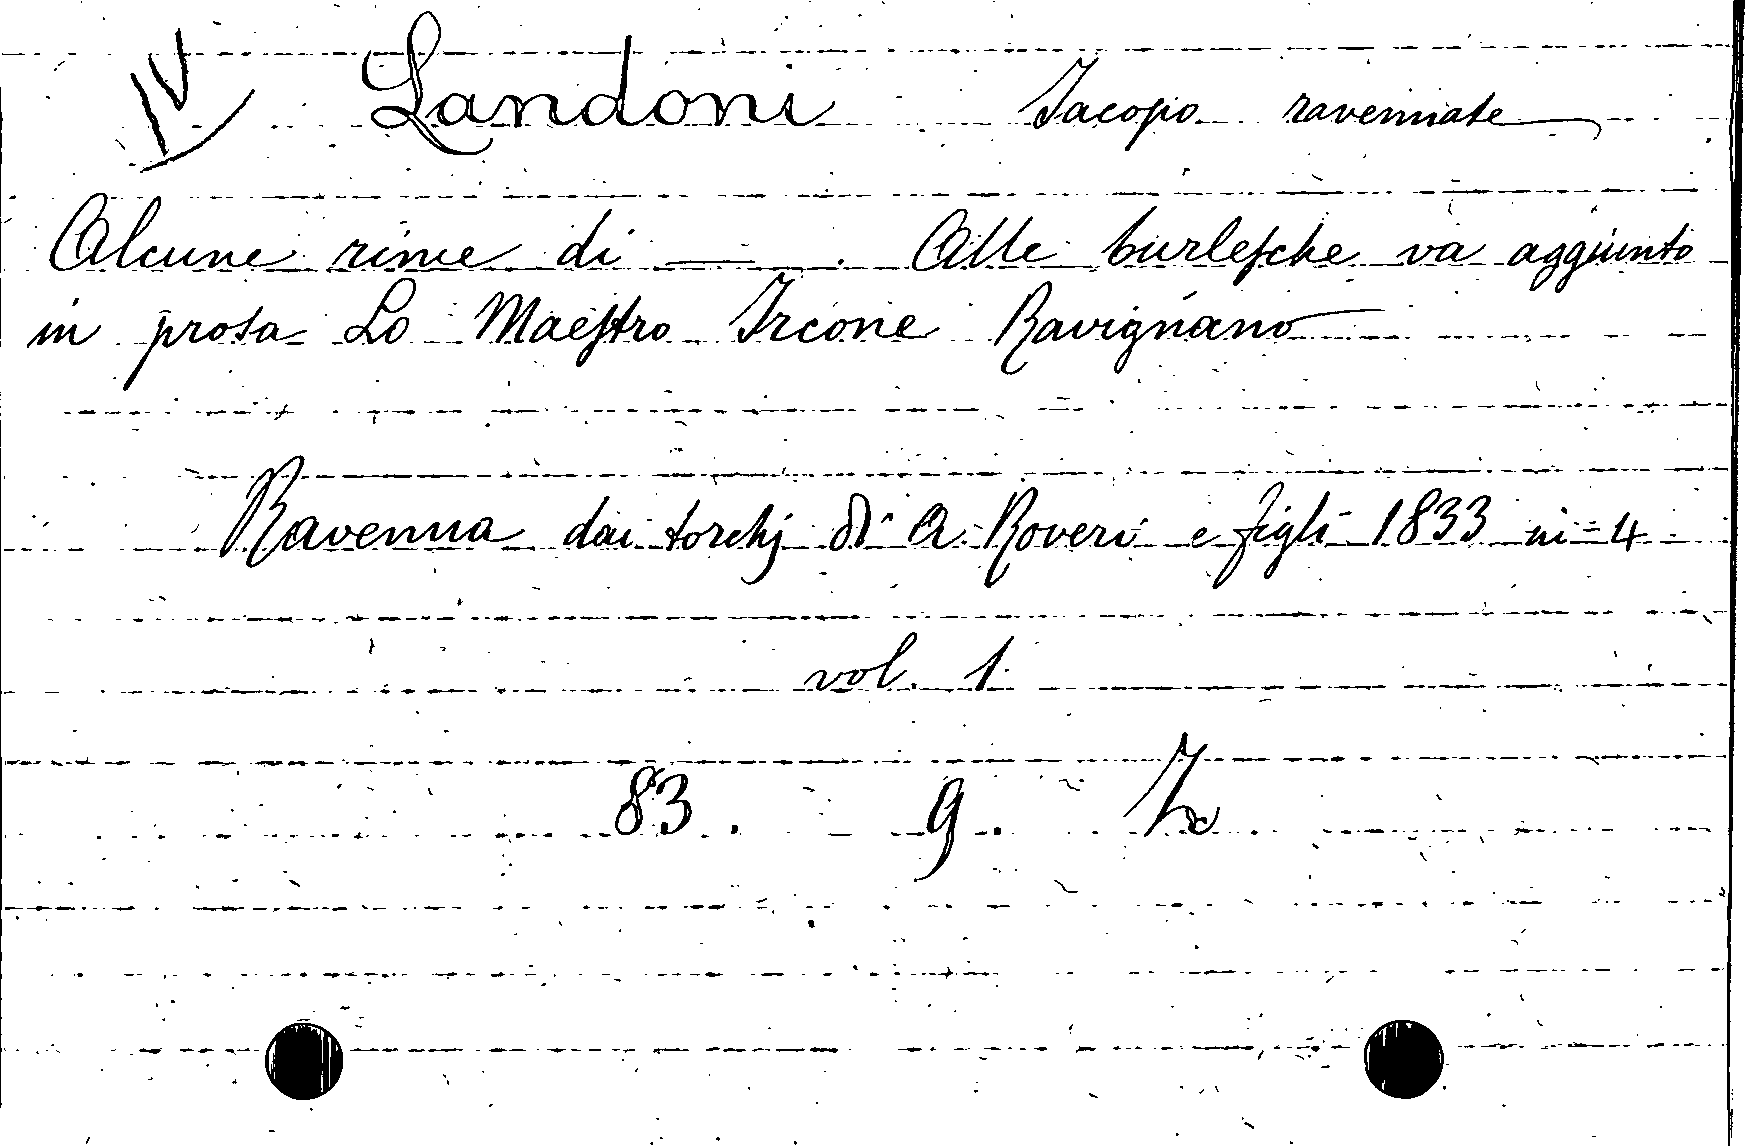 IV Landoni Jacopo ravennate
Alcune rime di — . Alle burlesche va aggiunto
in prosa Lo Maestro Ircone Ravignano
Ravenna dai torchj di A. Roveri e figli 1833 in-4
vol. 1
83. 9.